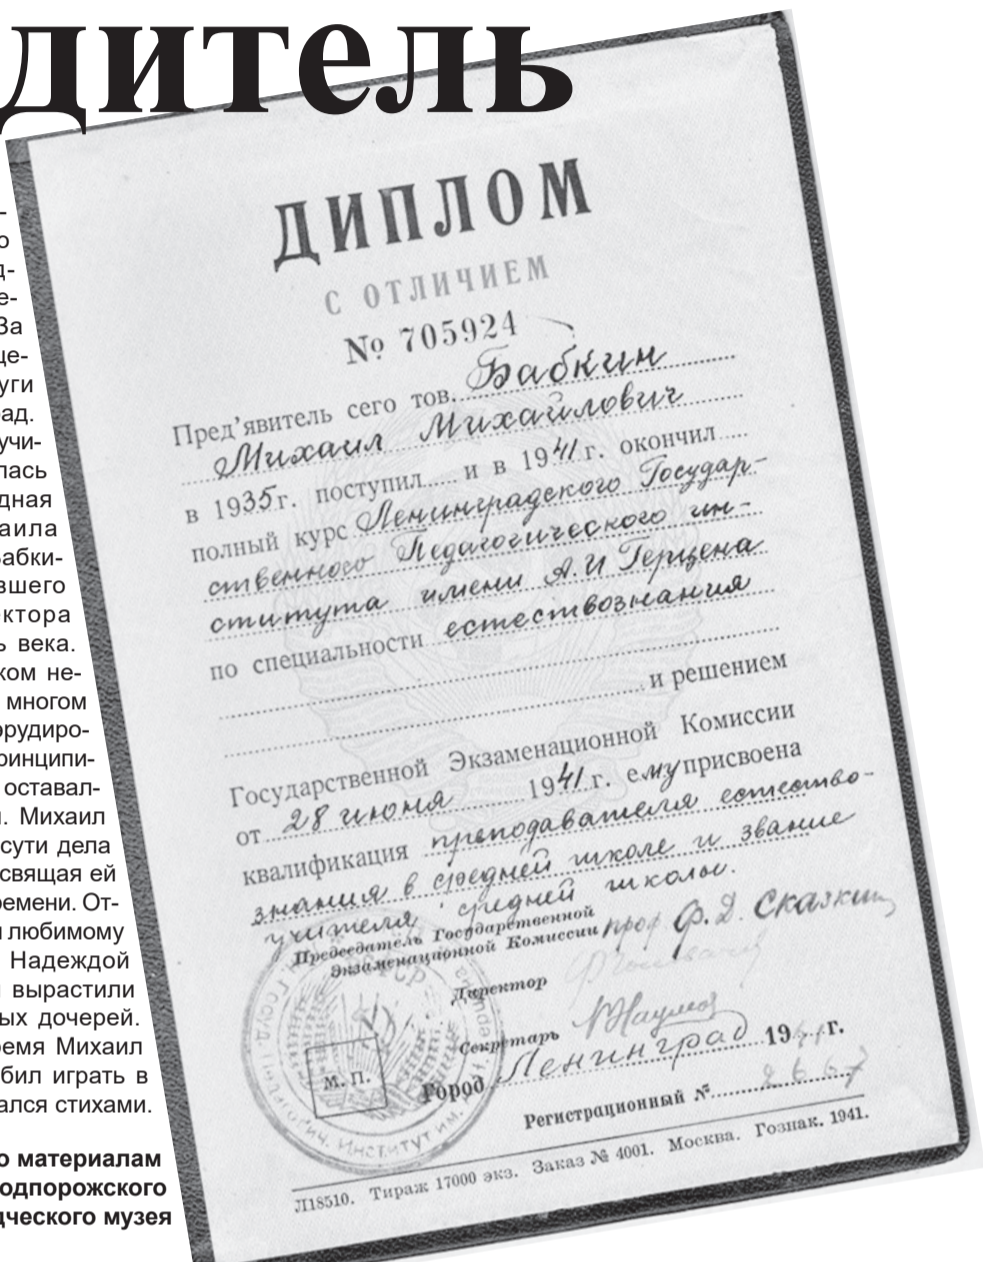 дитель
-
о
д-
е-
За
це-
уги
ад.
учи-
лась
дная
аила
Бабки-
вшего
ктора
ь века.
ком не-
многом
эрудиро-
ринципи-
оставал-
Михаил
сути дела
свящая ей
ремени. От-
любимому
Надеждой
вырастили
ых дочерей.
емя Михаил
бил играть в
ался стихами.
о материалам
одпорожского
дческого музея
ДИПЛОМ
С ОТЛИЧИЕМ
№ 705924
Пред'явитель сего тов. Бабкин
Михаил Михайлович
в 1935 г. поступил и в 1941 г. окончил
полный курс Ленинградского Государ-
ственного Педагогического ин-
ститута имени А.И Герцена
по специальности естествознания
и решением
Государственной Экзаменационной Комиссии
от 28 июня 1941 г. ему присвоена
квалификация преподавателя естество-
знания в средней школе и звание
учителя средней школы.
Председатель Государственной
Экзаменационной Комиссии проф. Ф. Д. Сказкин
Директор
Секретарь Наумов
Город Ленинград 1941 г.
М. П.
Регистрационный № 2667
Л18510. Тираж 17000 экз. Заказ № 4001. Москва. Гознак. 1941.